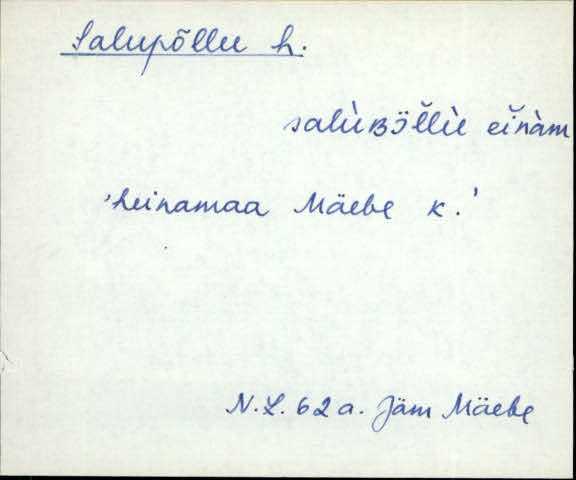 Salupõllu h.
salùʙö̆l̆lù ein̆àm
'heinamaa Mäebe k.'
N.L. 62 a. Jäm Mäebe